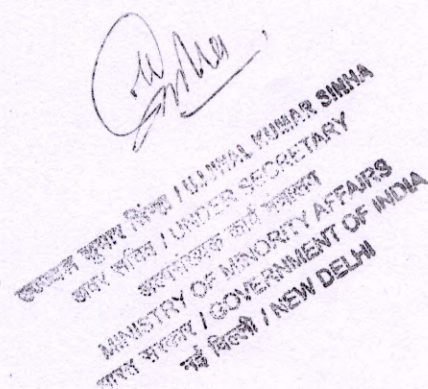 Sinha
उज्ज्वल कुमार सिन्हा / UJJWAL KUMAR SINHA
अवर सचिव / UNDER SECRETARY
अल्पसंख्यक कार्य मंत्रालय
MINISTRY OF MINORITY AFFAIRS
भारत सरकार / GOVERNMENT OF INDIA
नई दिल्ली / NEW DELHI